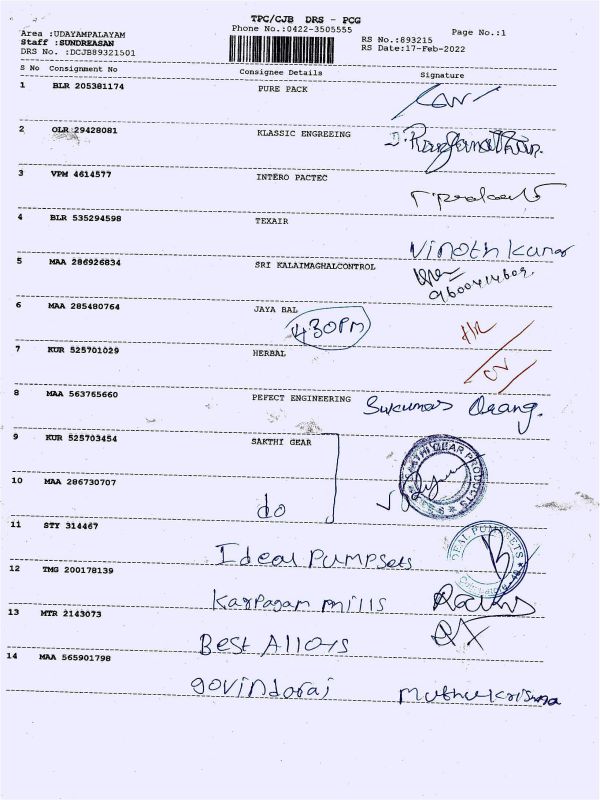 TPC/CJB DRS - PCG
Phone No.:0422-3505555
Page No.:1
Area :UDAYAMPALAYAM
Staff :SUNDREASAN
DRS No. :DCJB89321501
RS No.:893215
RS Date:17-Feb-2022
S No Consignment No Consignee Details Signature
1 BLR 205381174 PURE PACK
2 OLR 29428081 KLASSIC ENGREEING
3 VPM 4614577 INTERO PACTEC
4 BLR 535294598 TEXAIR
Vinoth Kumar
5 MAA 286926834 SRI KALAIMAGHALCONTROL
9600414602.
6 MAA 285480764 JAYA BAL
4.30PM
7 KUR 525701029 HERBAL
8 MAA 563765660 PEFECT ENGINEERING
9 KUR 525703454 SAKTHI GEAR
SAKTHI GEAR PRODUCTS
10 MAA 286730707
do
11 STY 314467
Ideal Pumpsets
IDEAL PUMPSETS
12 TMG 200178139
Karpagam mills
13 MTR 2143073
Best Alloys
14 MAA 565901798
govindaraj
Muthukrishna